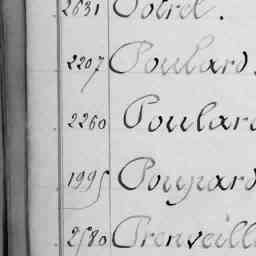 2631 Potrel.
2207 Poulard.
2260 Poulard
1995 Poupard
2580 Prenveille